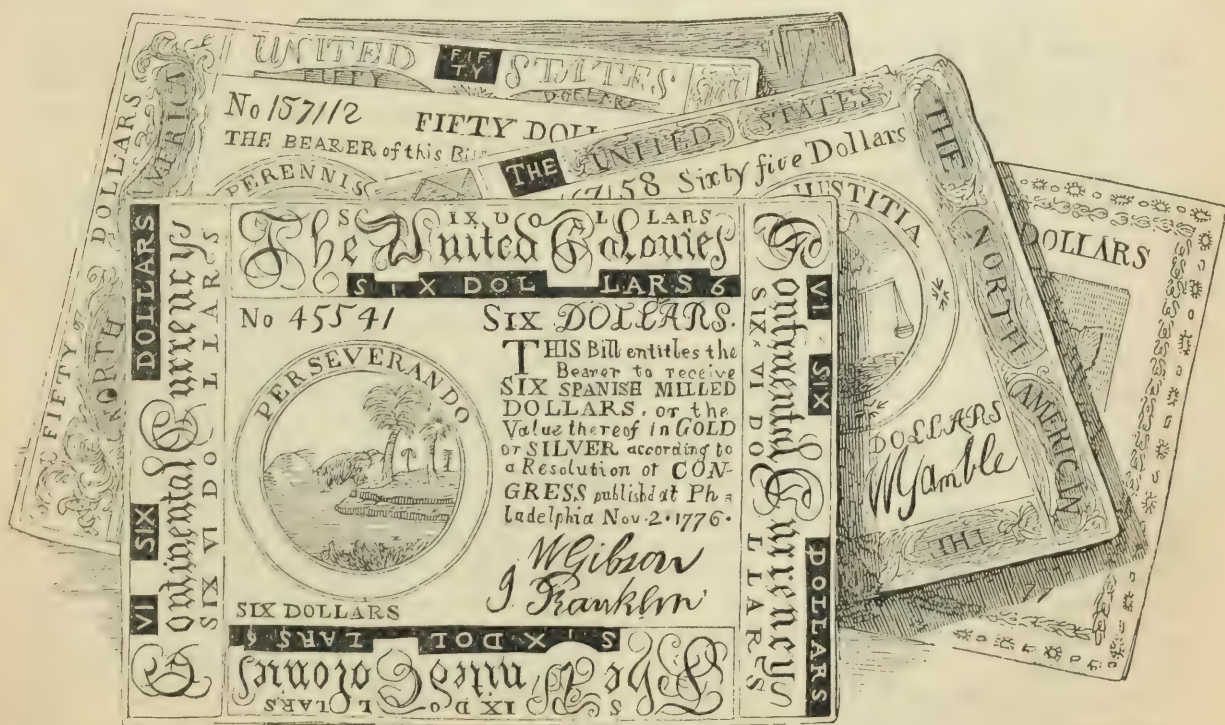 UNITED FIFTY STATES
FIFTY DOLLARS
No 157112 FIFTY DOLL
THE BEARER of this Bill
PERENNIS
FIFTY DOLLARS
NORTH AMERICA
THE UNITED STATES
58 Sixty five Dollars
JUSTITIA
DOLLARS
WGamble
THE NORTH AMERICA
THE
DOLLARS
SIX DOLLARS
The United Colonies
SIX DOL LARS 6
No 45541 SIX DOLLARS.
PERSEVERANDO
THIS Bill entitles the
Bearer to receive
SIX SPANISH MILLED
DOLLARS, or the
Value thereof in GOLD
or SILVER according to
a Resolution of CON-
GRESS publishd at Ph
ladelphia Nov. 2. 1776.
WGibson
J Franklin
SIX DOLLARS
VI SIX DOLLARS
Continental Currency
SIX VI DOLLLARS
Continental Currency
SIX VI DOLLLARS
VI SIX DOLLARS
SIX DOL LARS 6
The United Colonies
SIX DOLLARS